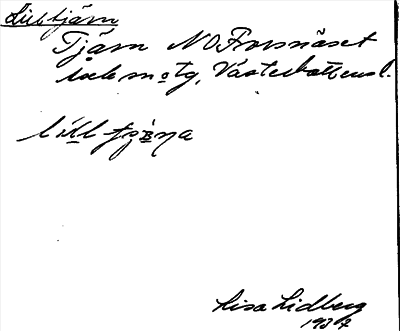 Lilltjärn
Tjärn NO Forsnäset
sockn o tg, Västerbottens l.
lill tjä̀ṇa
Lisa Lidberg
1937